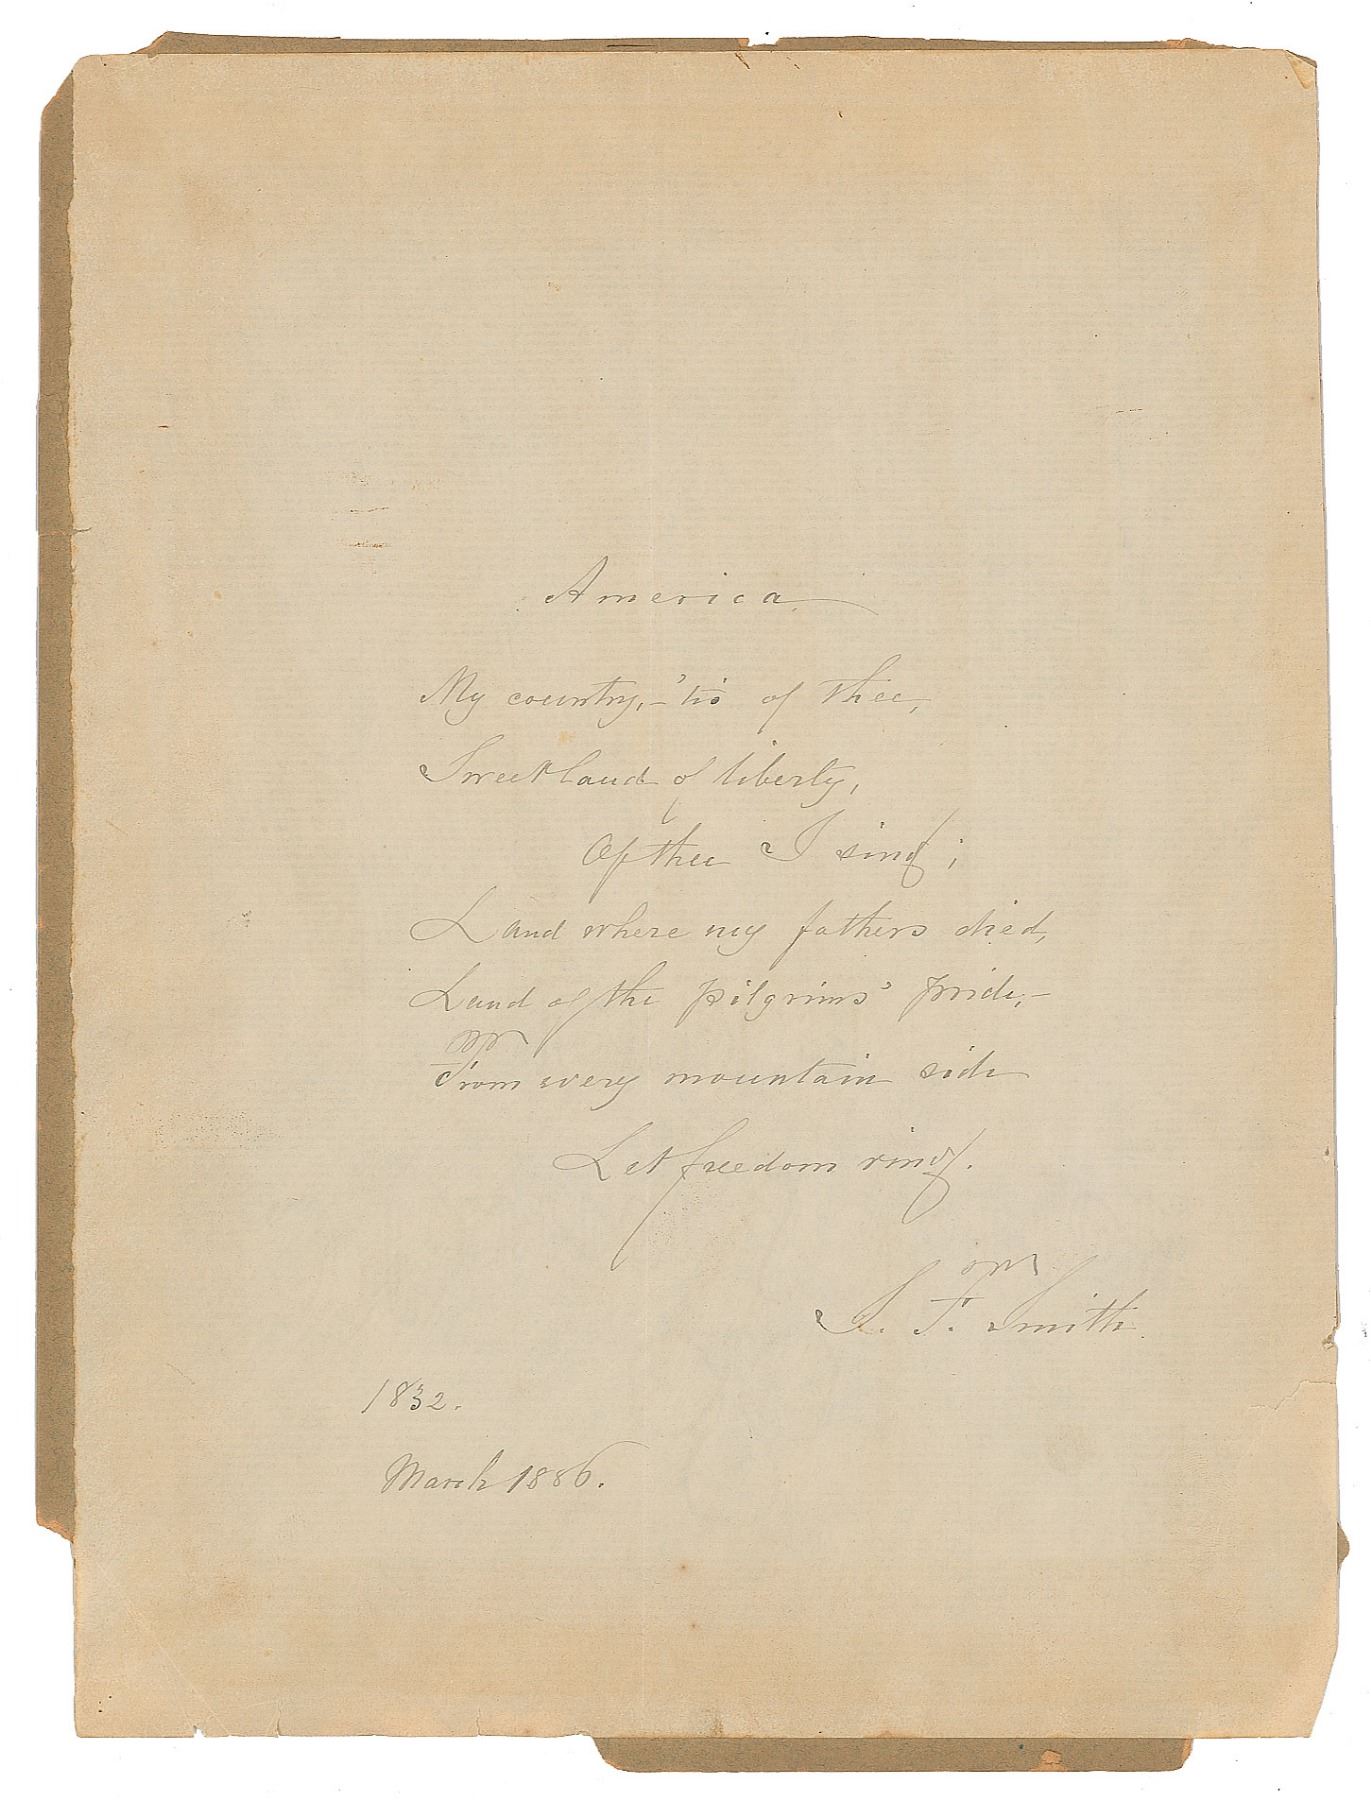 America
My country,-'tis of thee,
Sweet land of liberty,
Of thee I sing;
Land where my fathers died,
Land of the pilgrims' pride,-
From every mountain side
Let freedom ring.
S. F. Smith.
1832.
March 1886.